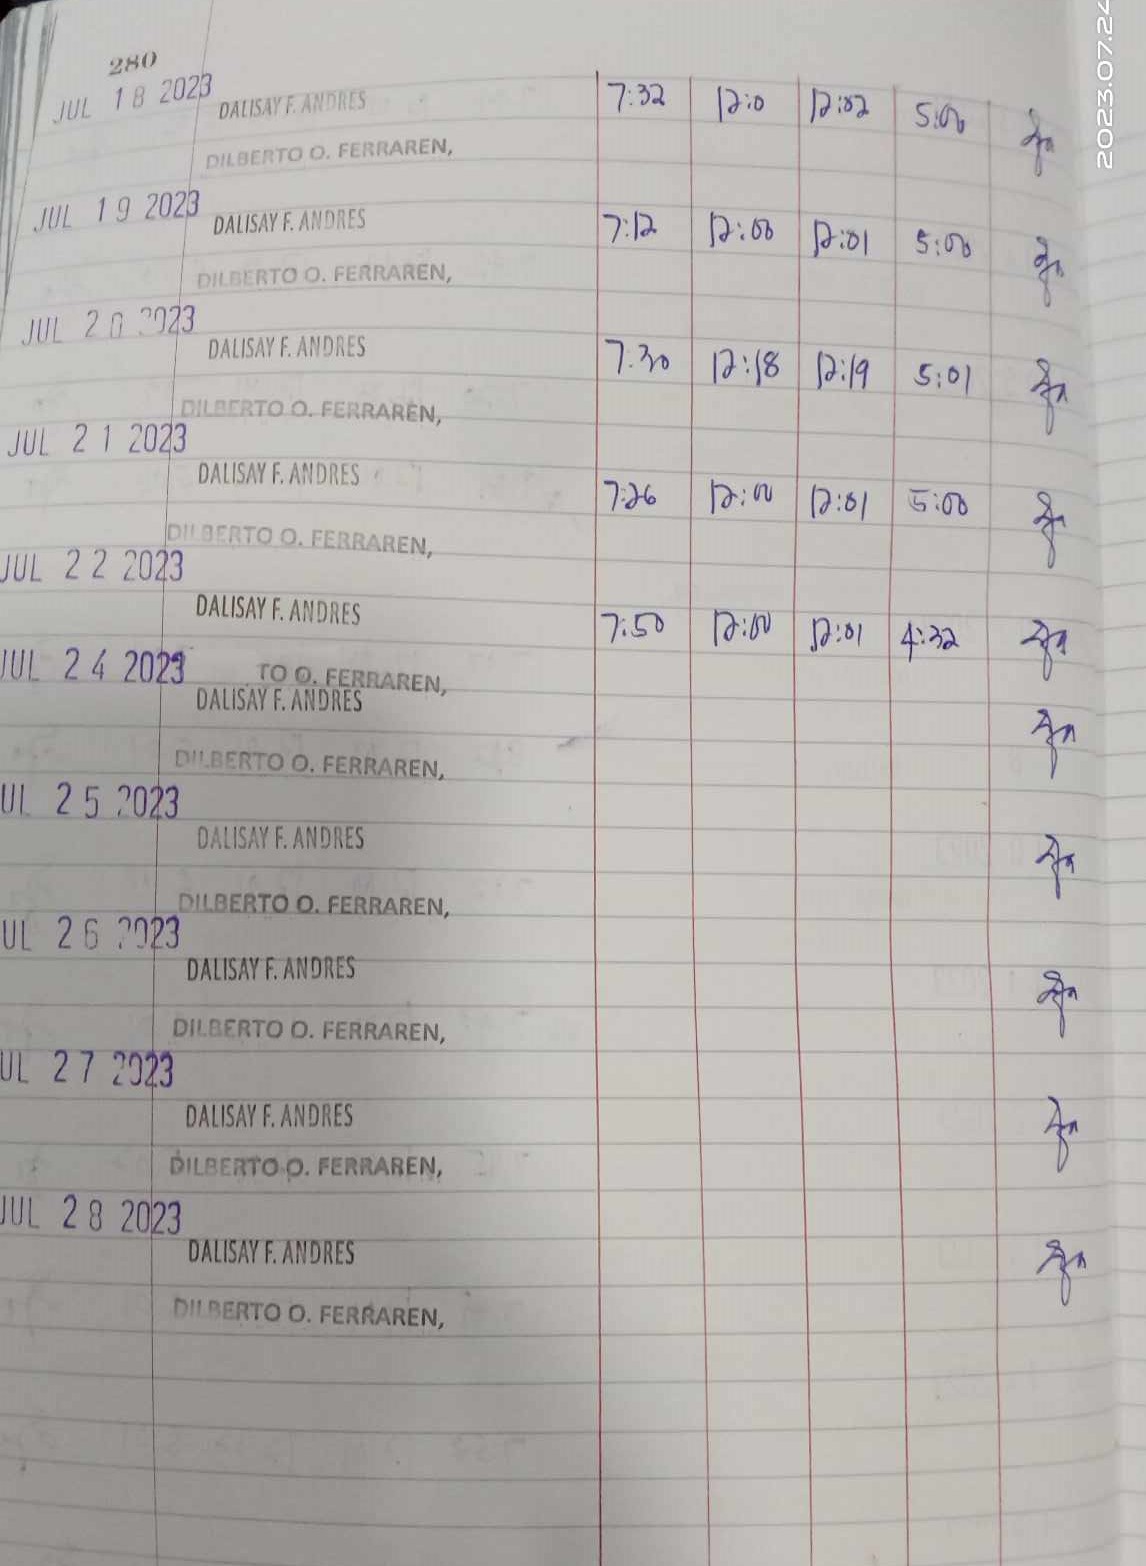 280
2023.07.24
JUL 18 2023
DALISAY F. ANDRES 7:32 12:0 12:02 5:00
DILBERTO O. FERRAREN,
JUL 19 2023
DALISAY F. ANDRES 7:12 12:00 12:01 5:00
DILBERTO O. FERRAREN,
JUL 20 2023
DALISAY F. ANDRES 7:30 12:18 12:19 5:01
DILBERTO O. FERRAREN,
JUL 21 2023
DALISAY F. ANDRES 7:26 12:00 12:01 5:00
DILBERTO O. FERRAREN,
JUL 22 2023
DALISAY F. ANDRES 7:50 12:00 12:01 4:32
JUL 24 2023 TO O. FERRAREN,
DALISAY F. ANDRES
DILBERTO O. FERRAREN,
UL 25 2023
DALISAY F. ANDRES
DILBERTO O. FERRAREN,
UL 26 2023
DALISAY F. ANDRES
DILBERTO O. FERRAREN,
UL 27 2023
DALISAY F. ANDRES
DILBERTO O. FERRAREN,
JUL 28 2023
DALISAY F. ANDRES
DILBERTO O. FERRAREN,